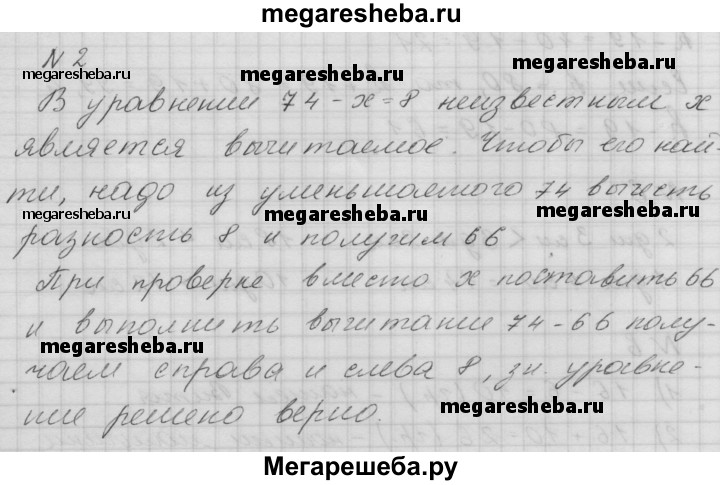 megaresheba.ru
N 2
megaresheba.ru
megaresheba.ru
megaresheba.ru
В уравнении 74 - x = 8 неизвестным x
является вычитаемое. Чтобы его най-
ти, надо из уменьшаемого 74 вычесть
megaresheba.ru
megaresheba.ru
megaresheba.ru
разность 8 и получим 66
При проверке вместо x поставить 66
и выполнить вычитание 74 - 66 полу-
megaresheba.ru
чаем справа и слева 8, зн. уравне-
ние решено верно.
megaresheba.ru
Мегарешеба.ру